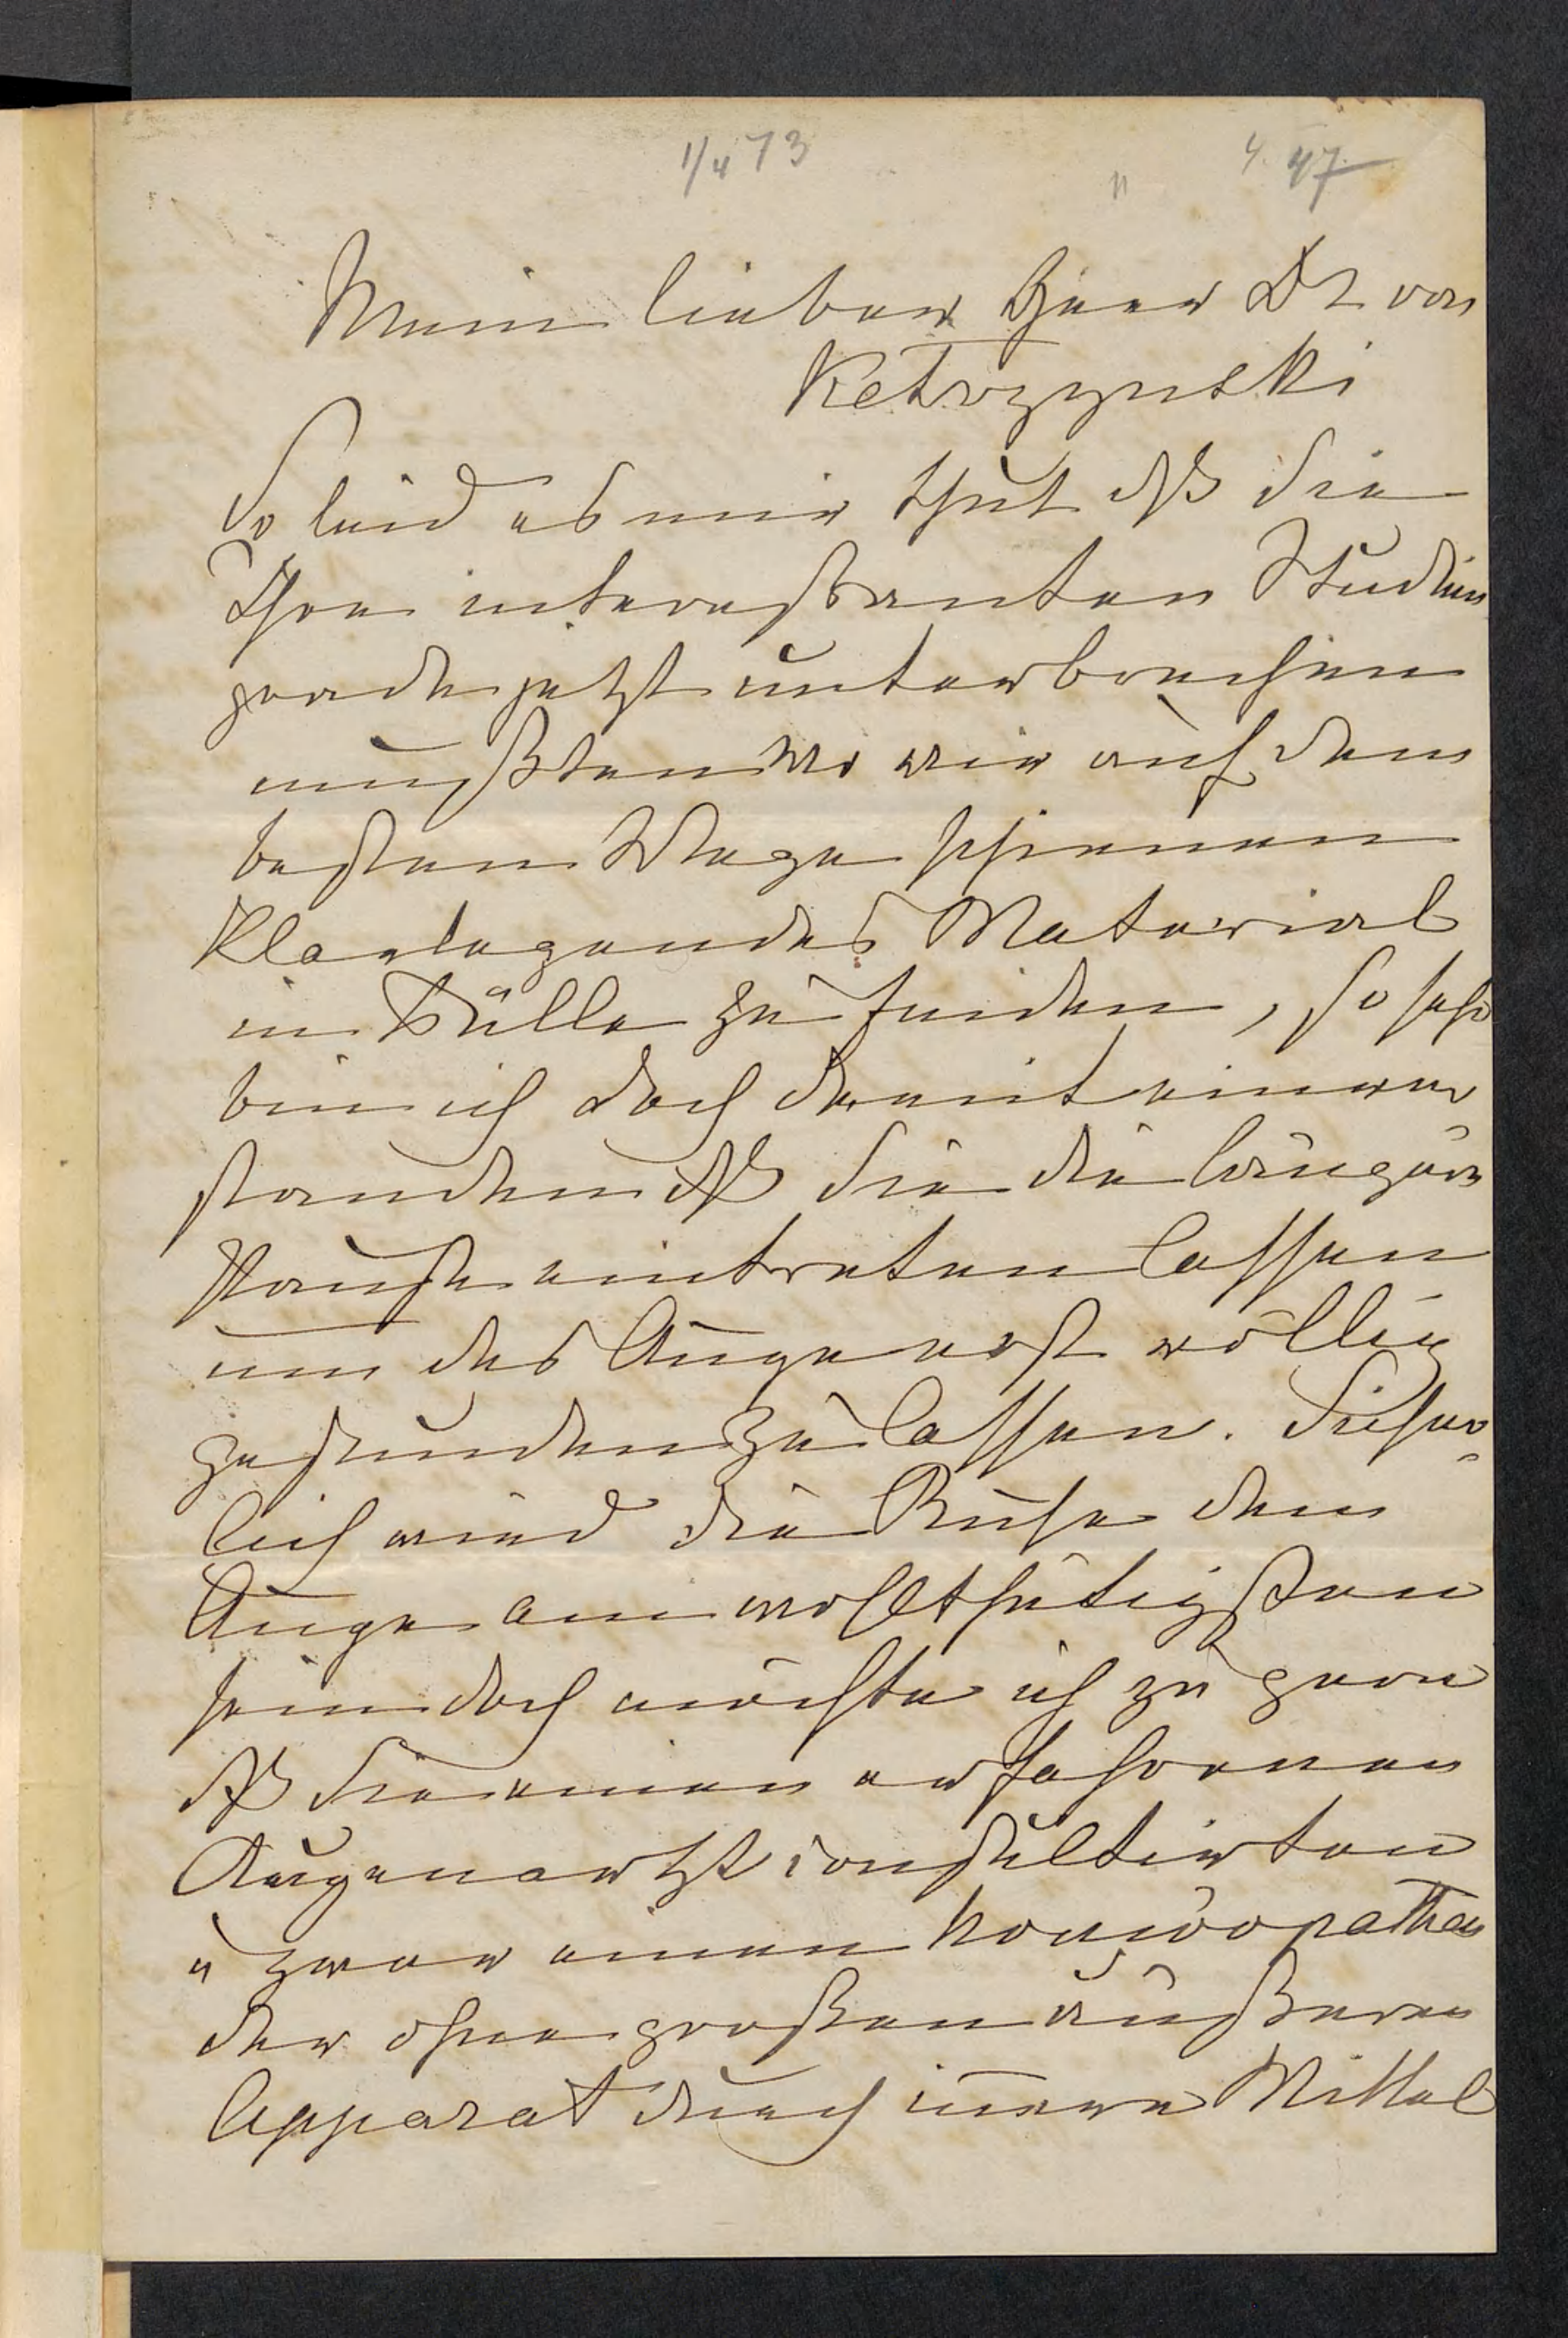 1/4 73
4. 47
Mein lieber Herr Dr von
Ketrzynski
So leid es mir thut dß Sie
Ihre interessanten Studien
grade jetzt unterbrechen
mußten wo wir auf dem
besten Wege schienen
Klarlegendes Material
in Fülle zu finden, so sehr
bin ich doch damit einver
standen dß Sie die längere
Pause eintreten lassen
um das Auge erst völlig
gesunden zu lassen. Sicher-
lich wird die Ruhe dem
Auge am wohlthätigsten
sein doch möchte ich zu gern
dß Sie einen erfahrenen
Augenartzt consultirten
u zwar einen homöopathen
der ohne großen äußeren
Apparat durch innere Mittel